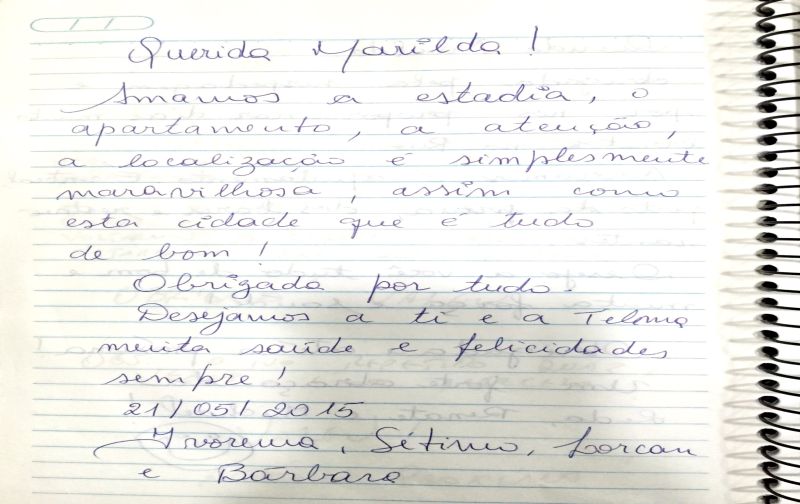 Querida Marilda!
Amamos a estadia, o
apartamento, a atenção,
a localização é simplesmente
maravilhosa, assim como
esta cidade que é tudo
de bom!
Obrigada por tudo.
Desejamos a ti e a Telma
muita saúde e felicidades
sempre!
21/05/2015
Sétimo, Lorcan
e Bárbara